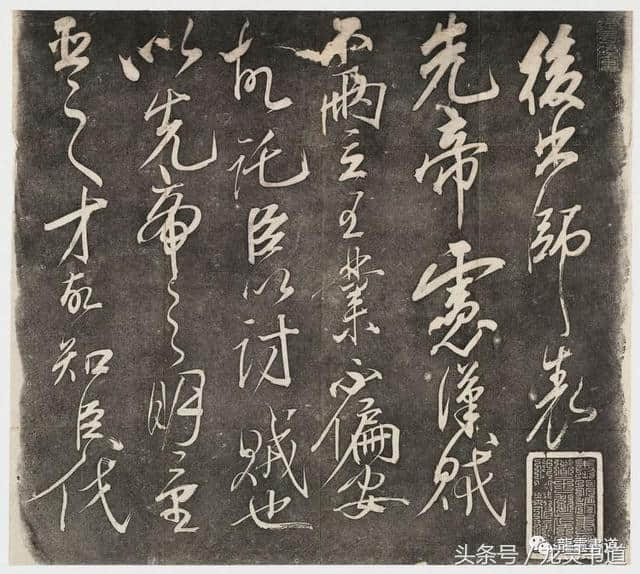 後出師表
先帝慮漢賊
不兩立王業不偏安
故託臣以討賊也
以先帝之明量
臣之才故知臣伐
龍靈書道
头条号 / 龙灵书道